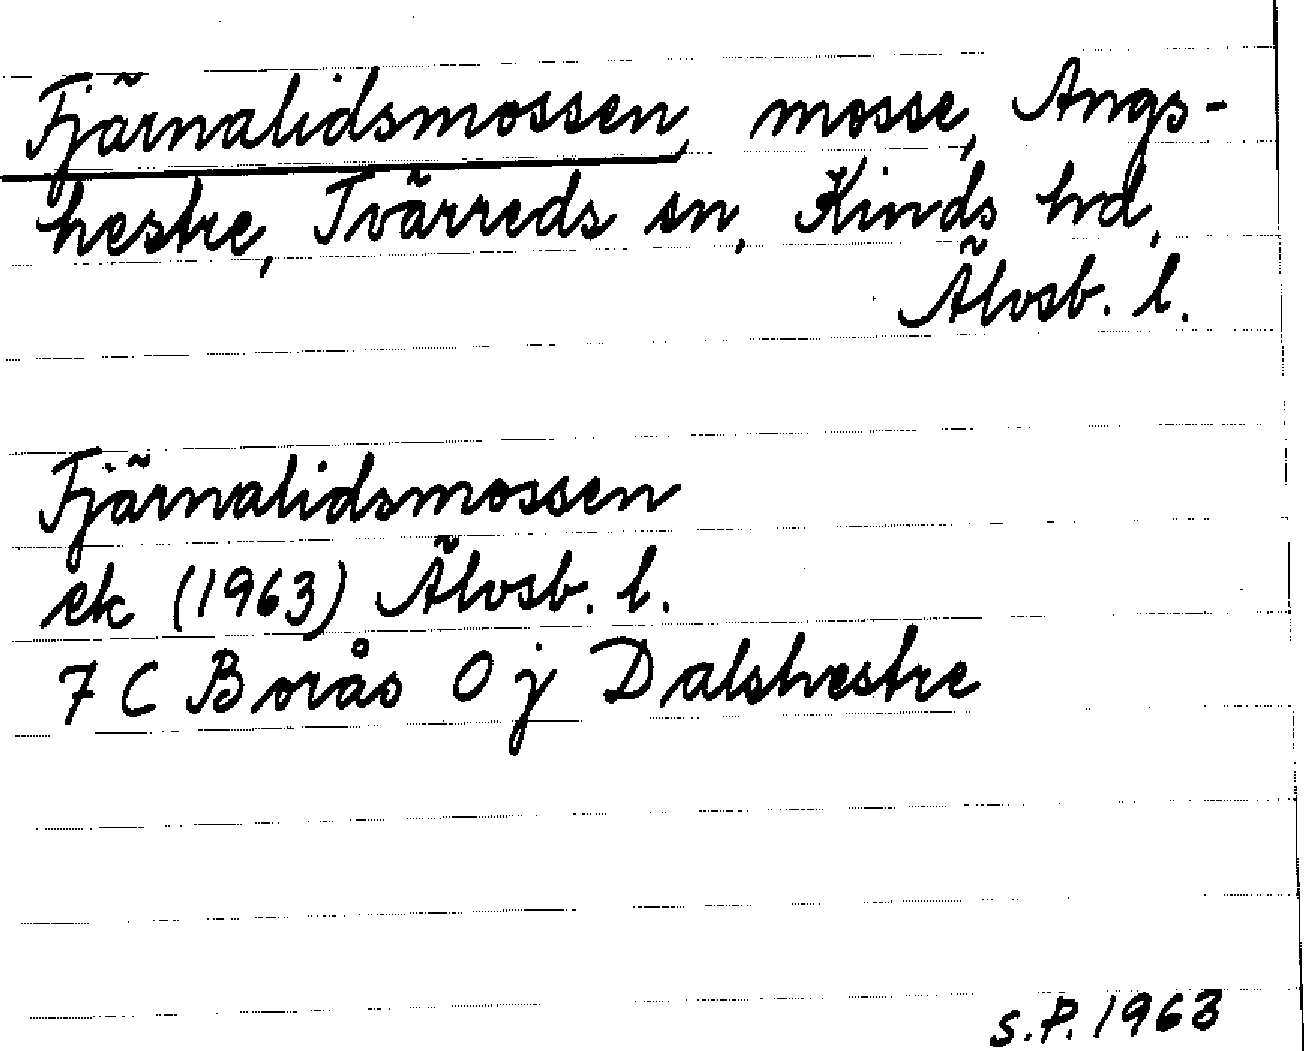 Fjärnalidsmossen, mosse, Angs-
hestre, Tvärreds sn, Kinds hd,
Älvsb. l.
Fjärnalidsmossen
ek (1963) Älvsb. l.
7 C Borås 0 j Dalshestre
S.P. 1963